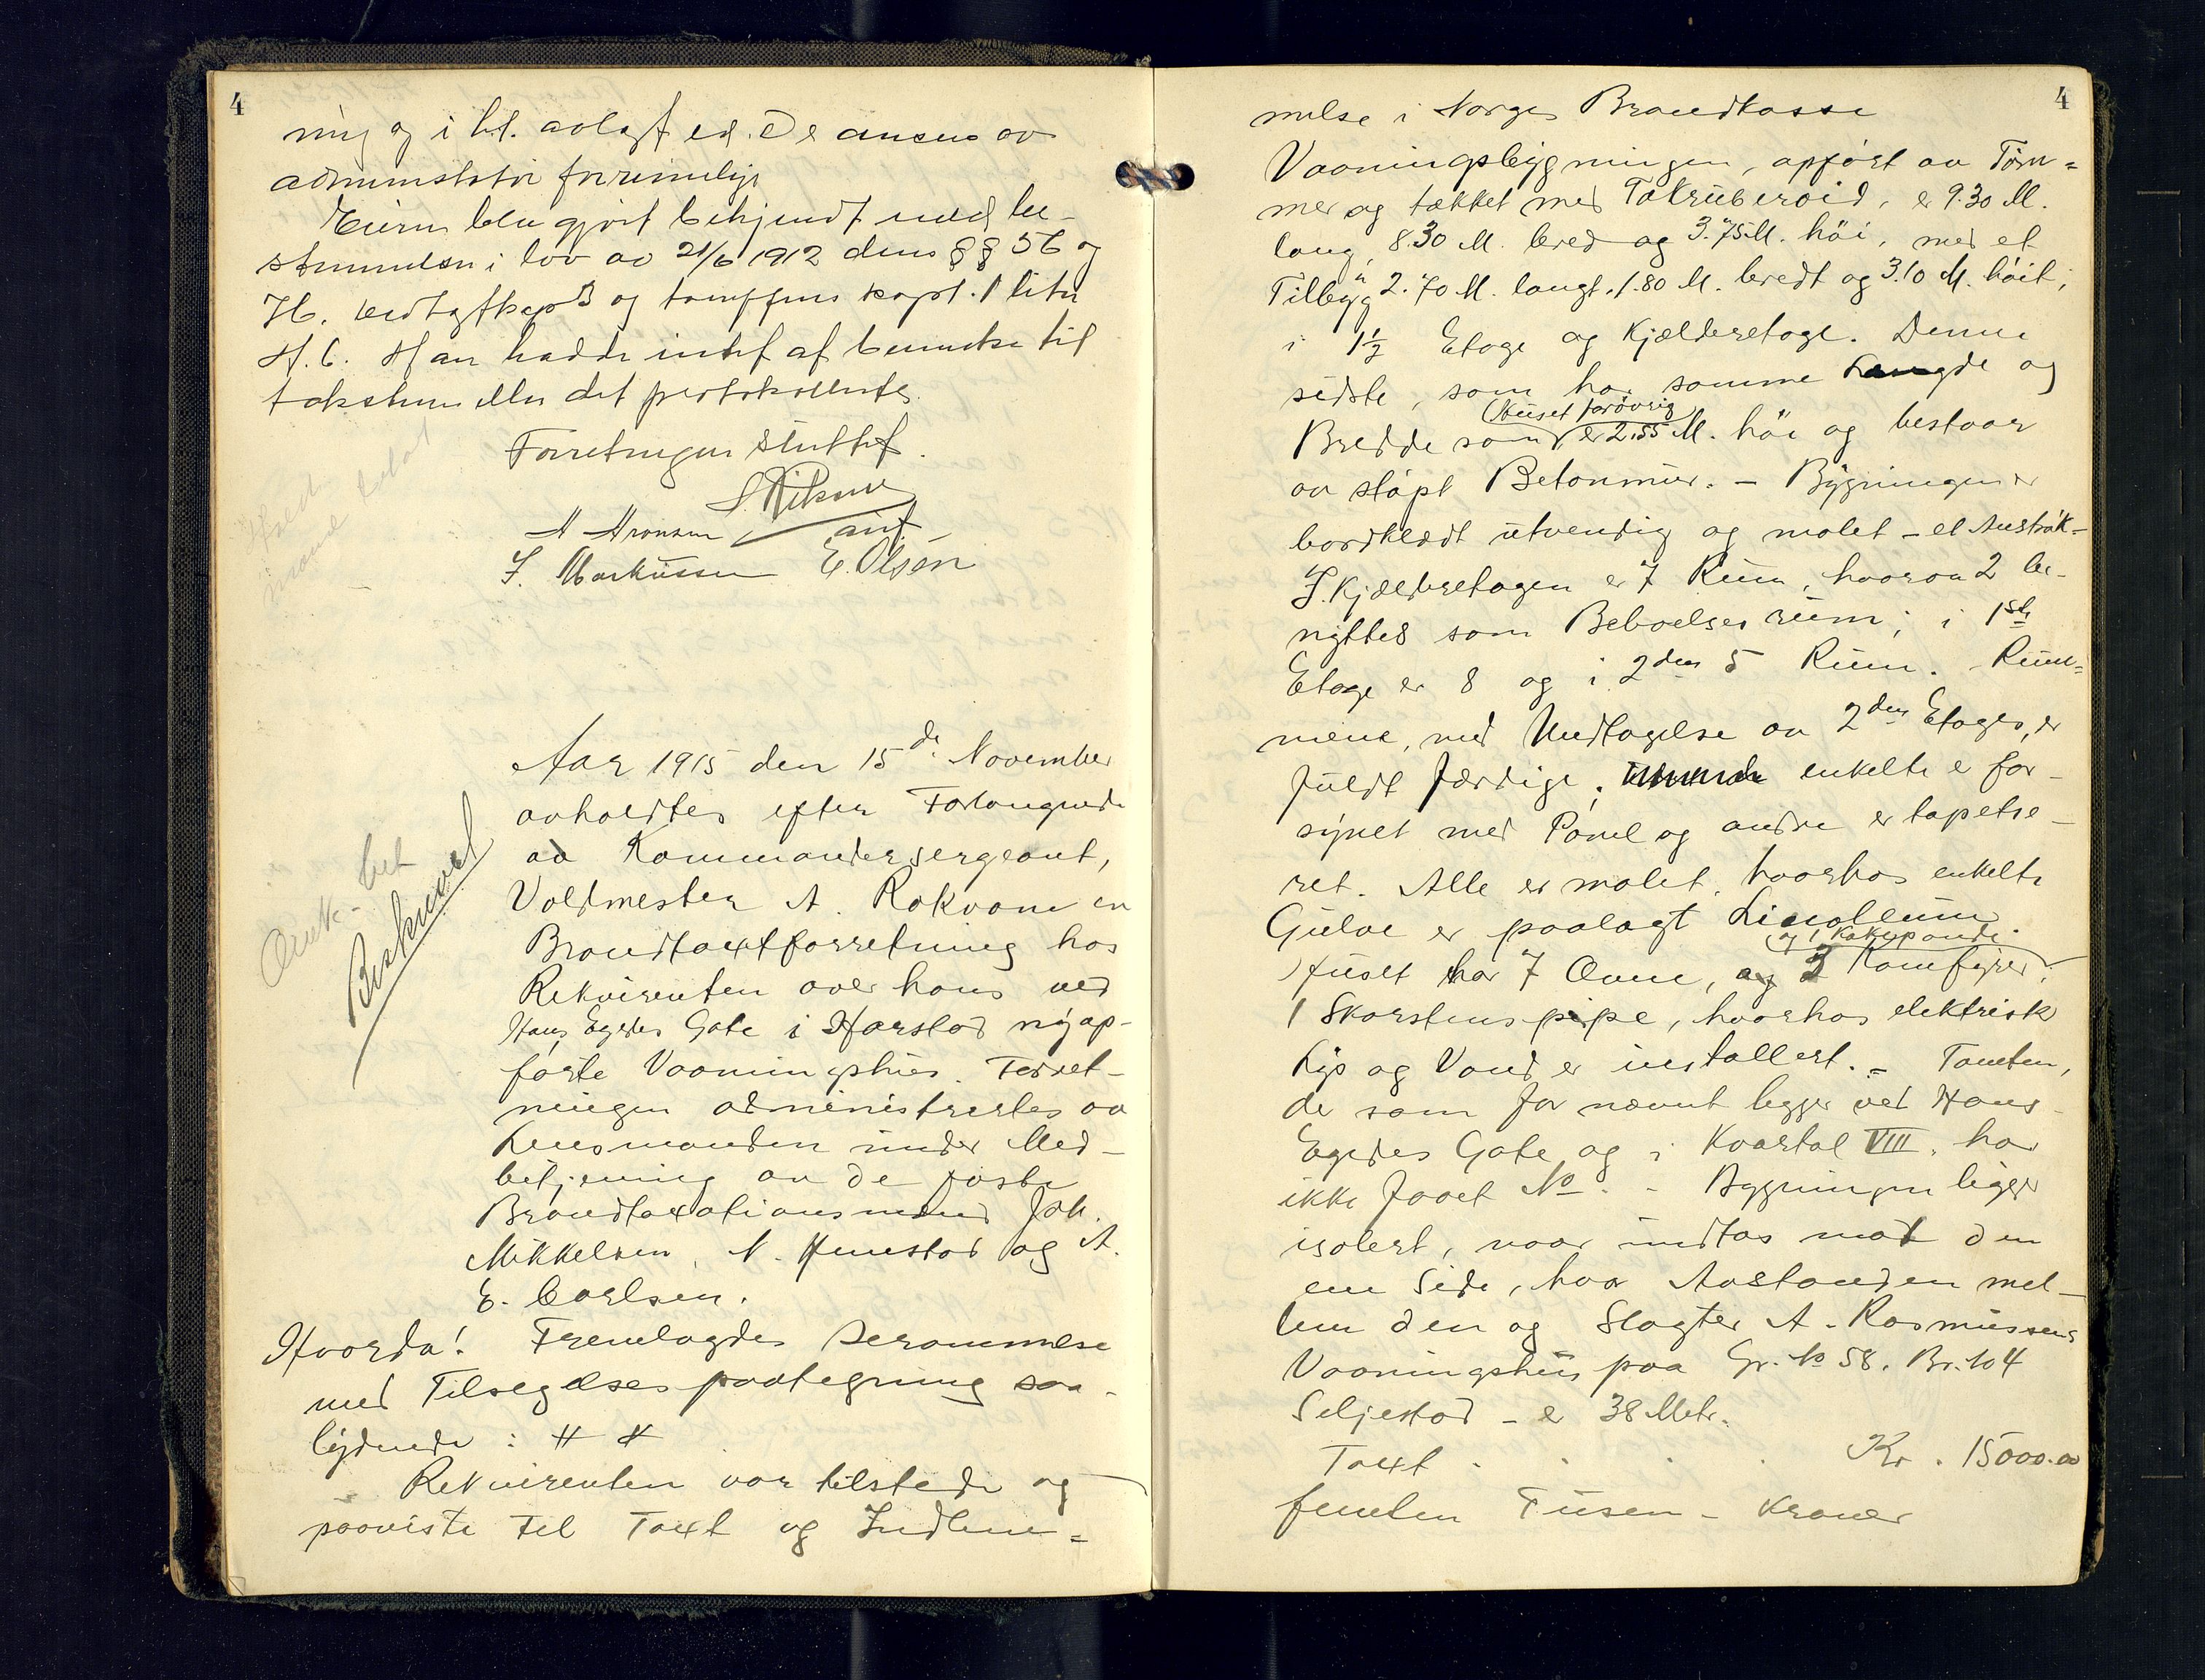 4
ning og i h.t. avlagt ed. De ansees av
administrator forsvarlige
Eieren blev gjort bekjendt med be-
stemmelsen i lov av 21/6 1912 dens §§ 56 og
og kapt. 1 litr
H. C. Han hadde intet at bemerke til
taksten eller det protokollerte.
Forretningen sluttet.
A Aronsen
J. Markussen E. Olsen
Aar 1915 den 15de November
avholdtes efter Forlangende
av Kommandersergeant,
Voldmester A. Rokvam en
Brandtaxtforretning hos
Rekvirenten over hans ved
Hans Egedes Gate i Harstad nyop-
førte Vaaningshus. Forret-
ningen administrertes av
Lensmanden under Med-
betjening av de faste
Brandtaxationsmænd Joh.
Mikkelsen, N. Hemstad og A.
E. Carlsen.
Beskrevet
Hvorda! Fremlagdes Berammelse
med Tilsigelsespaategning saa-
lydende: # #
Rekvirenten var tilstede og
paaviste til Taxt og Indlem=
4
melse i Norges Brandkasse
Vaaningsbygningen, opført av Tøm=
mer og tækket med Takruberoid, er 9.30 M.
lang, 8.30 M. bred og 3.75 M. høi, med et
Tilbygg 2.70 M. langt, 1.80 M. bredt og 3.10 M. høit;
i 1½ Etage og Kjælderetage. Denne
sidste, som har samme Længde og
Bredde som Huset forøvrig er 2.55 M. høi og bestaar
av støpt Betonmur. – Bygningen er
bordklædt utvendig og malet – et Anstrøk-
I Kjælderetagen er 7 Rum, hvorav 2 be-
nyttes som Beboelsesrum; i 1ste
Etage er 8 og i 2den 5 Rum. Rum=
mene, med Undtagelse av 2den Etages, er
fuldt færdige; enkelte er for-
synet med Panel og andre er tapetse-
ret. Alle er malet, hvorhos enkelte
Gulve er paalagt Linoleum.
Huset har 7 Ovne, og 2 Komfyrer og 1 Kokepande.
1 Skorstenspipe, hvorhos elektrisk
Lys og Vand er installert. – Tomten,
der som før nævnt ligger ved Hans
Egedes Gate og i Kvartal VIII, har
ikke faaet No. – Bygningen ligger
isolert, naar undtas mot den
ene Side, hvor Avstanden mel-
lem den og Slagter A. Rasmussens
Vaaningshus paa Gr. No 58, Br. No 4
Seljestad – er 38 Metr.
Taxt . . . . Kr. 15000.00
femten Tusen – Kroner